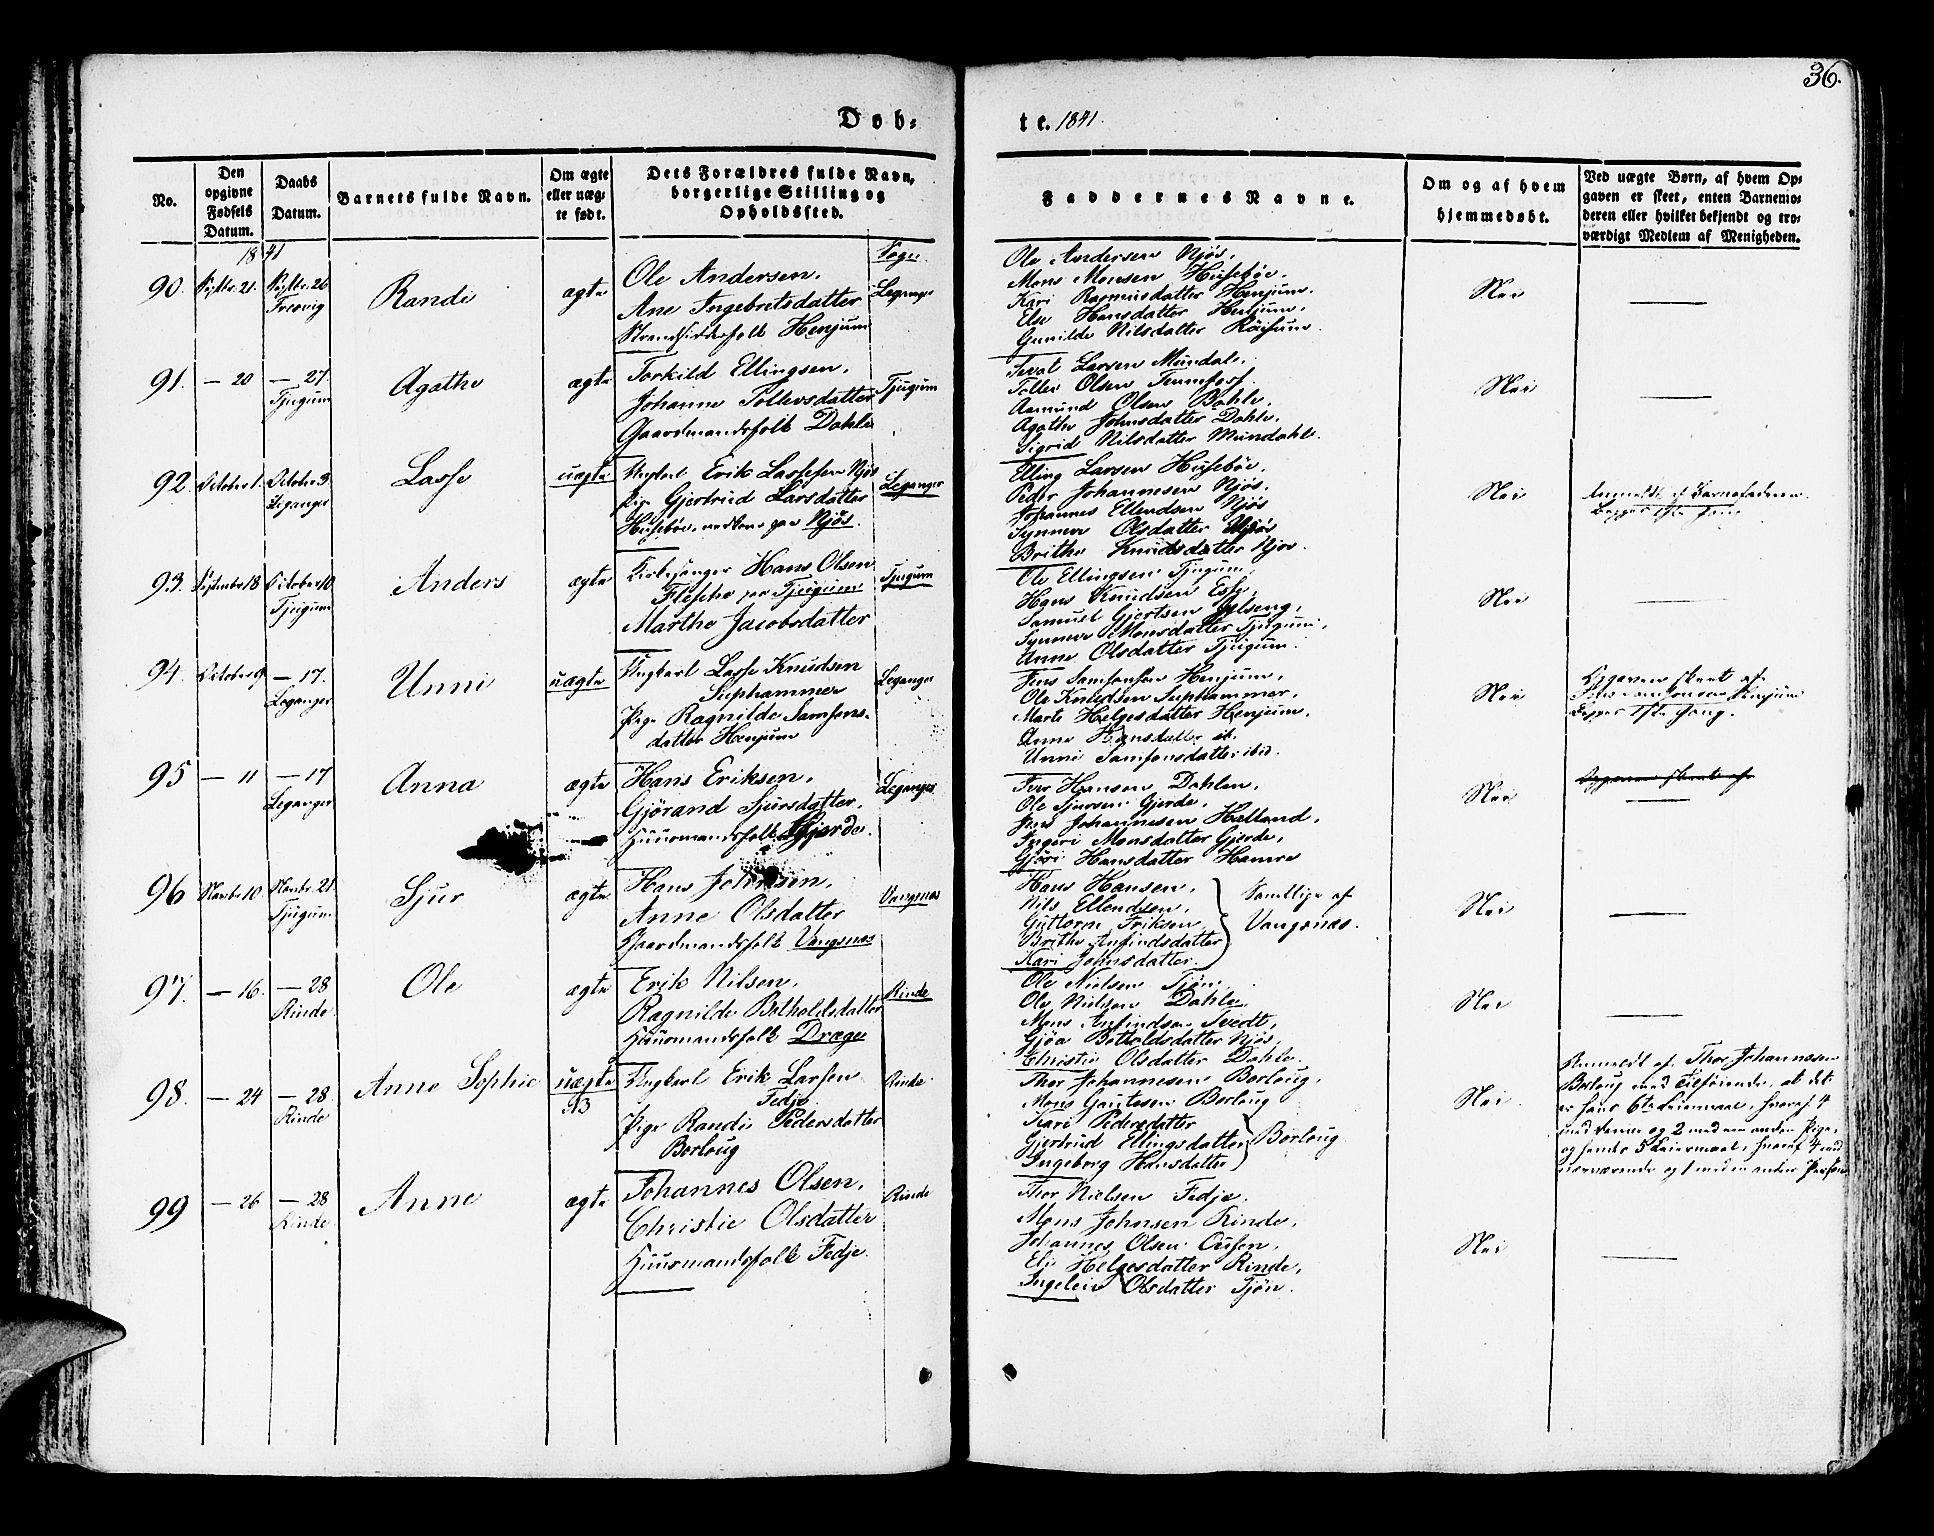 Døb-
te. 1841.
36.
No.
Den opgivne Fødsels Datum.
Daabs Datum.
Barnets fulde Navn.
Om ægte eller uægte født.
Dets Forældres fulde Navn, borgerlige Stilling og Opholdssted.
Faddernes Navne.
Om og af hvem hjemmedøbt.
Ved uægte Børn, af hvem Opgaven er skeet, enten Barnemoderen eller hvilket bekjendt og troværdigt Medlem af Menigheden.
1841
Sogn.
90.
Septbr. 21.
Septbr. 26
Fresvig
Randi
ægte
Ole Andersen,
Ane Ingebretsdatter
Strandsidderfolk Henjum
Leganger
Ole Andersen Njøs,
Mons Monsen Husebøe,
Kari Rasmusdatter Henjum.
Else Hansdatter Henjum,
Gunilde Nilsdatter Röisum.
Nei
91.
— 20
— 27.
Tjugum
Agathe
ægte
Torkild Ellingsen,
Johanne Tollevsdatter
Gaardmandsfolk Dahle
Tjugum
Larsen Mundal,
Olsen
Aamund Olsen Dahle,
Agathe Johnsdatter Dahle,
Sigrid Nilsdatter Mundahl.
Nei
92.
October 1.
October 3.
Leganger
Lasse
uægte
Ungkarl Erik Lassesen Njös
Pige Gjertrud Larsdatter
Husebøe, nedkom paa Njös.
Leganger
Elling Larsen Husebøe,
Peder Johannesen Njøs,
Johannes Ellendsen Njøs
Synneve Olsdatter Njös
Brithe Knudsdatter Njøs.
Nei
Anmeldt af Barnefaderen.
Begges 1ste Gang
93.
Septembr 18
October 10.
Tjugum
Anders
ægte
Kirkesanger Hans Olsen
Flesche paa Tjugum
Marthe Jacobsdatter
Tjugum
Ole Ellingsen Tjugum,
Hans Knudsen Esse,
Samuel Gjertsen
Synneve Monsdatter Tjugum,
Anne Olsdatter Tjugum.
Nei
94.
October 9.
— 17.
Leganger
Unni
uægte
Ungkarl Lasse Knudsen
Suphammer
Pige Ragnilde Samsons-
datter Henjum
Leganger
Jens Samsonsen Henjum,
Ole Knudsen Suphammer,
Marte Helgesdatter Henjum,
Anna Hansdatter ib.
Unni Samsonsdatter ibid.
Nei
Opgaven skeet af
Jens Samsonsen Henjum
Begges 1ste Gang.
95
— 11
— 17
Leganger
Anna
ægte
Hans Eriksen,
Gjörand Sjursdatter,
Huusmandsfolk Gjerde.
Leganger
Iver Hansen Dahlen,
Ole Sjursen Gjerde,
Jens Johannesen Hatland,
Ingeri Monsdatter Gjerde,
Gjöri Hansdatter Hamre
Nei
Opgaven skeet af
96
Novbr. 10
Novbr. 21
Tjugum
Sjur
ægte
Hans Johnsen,
Anne Olsdatter
Gaardmandsfolk Vangsnæs
Vangsnæs
Hans Hansen,
Nils Ellendsen,
Guttorm Eriksen,
Brithe Anfindsdatter
Kari Johnsdatter.
Samtlige af
Vangsnæs.
Nei
97.
— 16.
— 28
Rinde
Ole
ægte
Erik Nilsen,
Ragnilde Botholdsdatter
Huusmandsfolk Dræge
Rinde
Ole Nielsen Tjön
Ole Nielsen Dahle,
Mons Anfindsen Tvedt,
Gjöa Botholdsdatter Njøs,
Christie Olsdatter Dahle.
Nei
98.
— 24
— 28
Rinde
Anne Sophie
uægte
NB
Ungkarl Erik Larsen
Fedje
Pige Randi Pedersdatter
Borloug
Rinde
Thor Johannesen Borloug,
Mons Gautesen Borloug
Kari Pedersdatter
Gjertrud Ellingsdatter
Ingeborg Hansdatter
Borloug
Nei
Anmeldt af Thor Johannesen
Borloug med Tilføiende, at det
er hans 6te Leiermaal, hvoraf 4
med denne og 2 med en anden Pige,
og hendes 5 Leiermaal, hvoraf 4 med
nærværende og 1 med en anden Person
99
— 26
— 28
Rinde
Anne
ægte
Johannes Olsen,
Christie Olsdatter
Huusmandsfolk Fedje.
Rinde
Thor Nielsen Fedje,
Mons Johnsen Rinde,
Johannes Olsen Ousen,
Eli Helgesdatter Rinde,
Ingelein Olsdatter Tjøn.
Nei